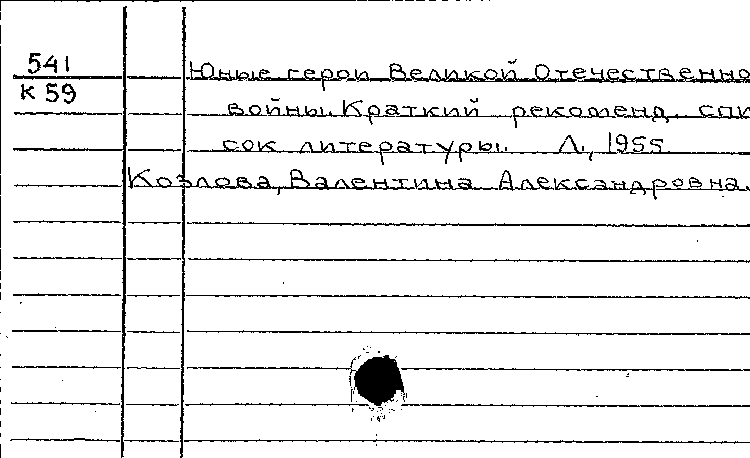 541
К 59
Юные герои Великой Отечественно
войны. Краткий рекоменд. спи
сок литературы. Л., 1955
Козлова, Валентина Александровна.